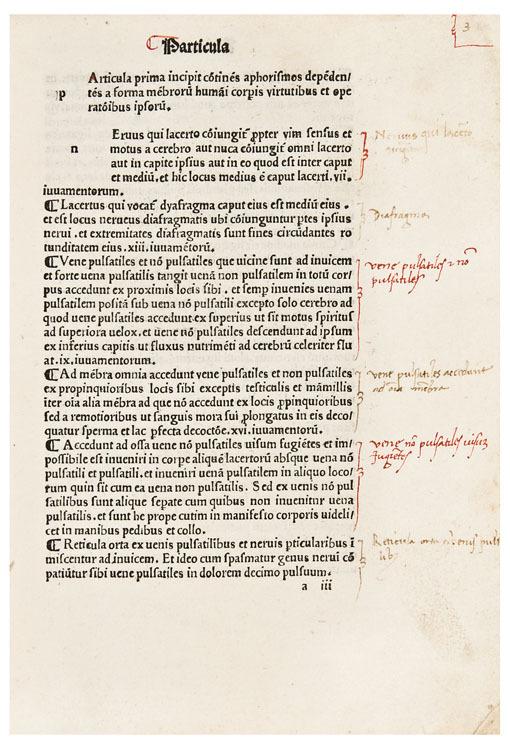 3
Particula
Articula prima incipit cõtinẽs aphorismos depẽden/
p tẽs a forma mẽbrorũ humãi corpis virtutibus et ope
ratõibus ipsorũ.
Eruus qui lacerto cõiungit ꝓpter vim sensus et
n motus a cerebro aut nuca cõiungit omni lacerto
aut in capite ipsius aut in eo quod est inter caput
et mediũ. et hic locus medius ẽ caput lacerti. vii.
iuuamentorum.
¶ Lacertus qui vocat dyafragma caput eius est mediũ eius .
et est locus nerueus diafragmatis ubi cõiunguntur ptes ipsius
nerui . et extremitates diafragmatis sunt fines circũdantes ro
tunditatem eius. xiii. iuuamẽtorũ.
¶ Vene pulsatiles et nõ pulsatiles que uicine sunt ad inuicem
et forte uena pulsatilis tangit uenã non pulsatilem in totũ cor/
pus accedunt ex proximis locis sibi . et semp inuenies uenam
pulsatilem positã sub uena nõ pulsatili excepto solo cerebro ad
quod uene pulsatiles accedunt ex superius ut sit motus spiritus
ad superiora uelox. et uene nõ pulsatiles descendunt ad ipsum
ex inferius capitis ut fluxus nutrimẽti ad cerebrũ celeriter flu
at. ix. iuuamentorum.
¶ Ad mẽbra omnia accedunt vene pulsatiles et non pulsatiles
ex propinquioribus locis sibi exceptis testiculis et mãmillis
iter oia alia mẽbra ad que nõ accedunt ex locis ꝓpinquioribus
sed a remotioribus ut sanguis mora sui ꝓlongatus in eis deco/
quatur sperma et lac pfecta decoctõe. xvi. iuuamentorũ.
¶ Accedunt ad ossa uene nõ pulsatiles uisum fugiẽtes et im/
possibile est inueniri in corpe aliquẽ lacertorũ absque uena nõ
pulsatili et pulsatili. et inueniri uenã pulsatilem in aliquo loco/
rum quin sit cum ea uena non pulsatilis. Sed ex uenis nõ pul
satilibus sunt alique sepate cum quibus non inuenitur uena
pulsatilis. et sunt he prope cutim in manifesto corporis uideli/
cet in manibus pedibus et collo.
¶ Reticula orta ex uenis pulsatilibus et neruis pticularibus ĩ
miscentur ad inuicem. Et ideo cum spasmatur genus nerui cõ
patiũtur sibi uene pulsatiles in dolorem decimo pulsuum.
a iii
Neruus qui lacerto
Diafragma
vene pulsatiles & nõ
pulsatiles
vene pulsatiles accedunt
ad oĩa mẽbra
vene nõ pulsatiles uisũ
fugiẽtes
Reticula orta